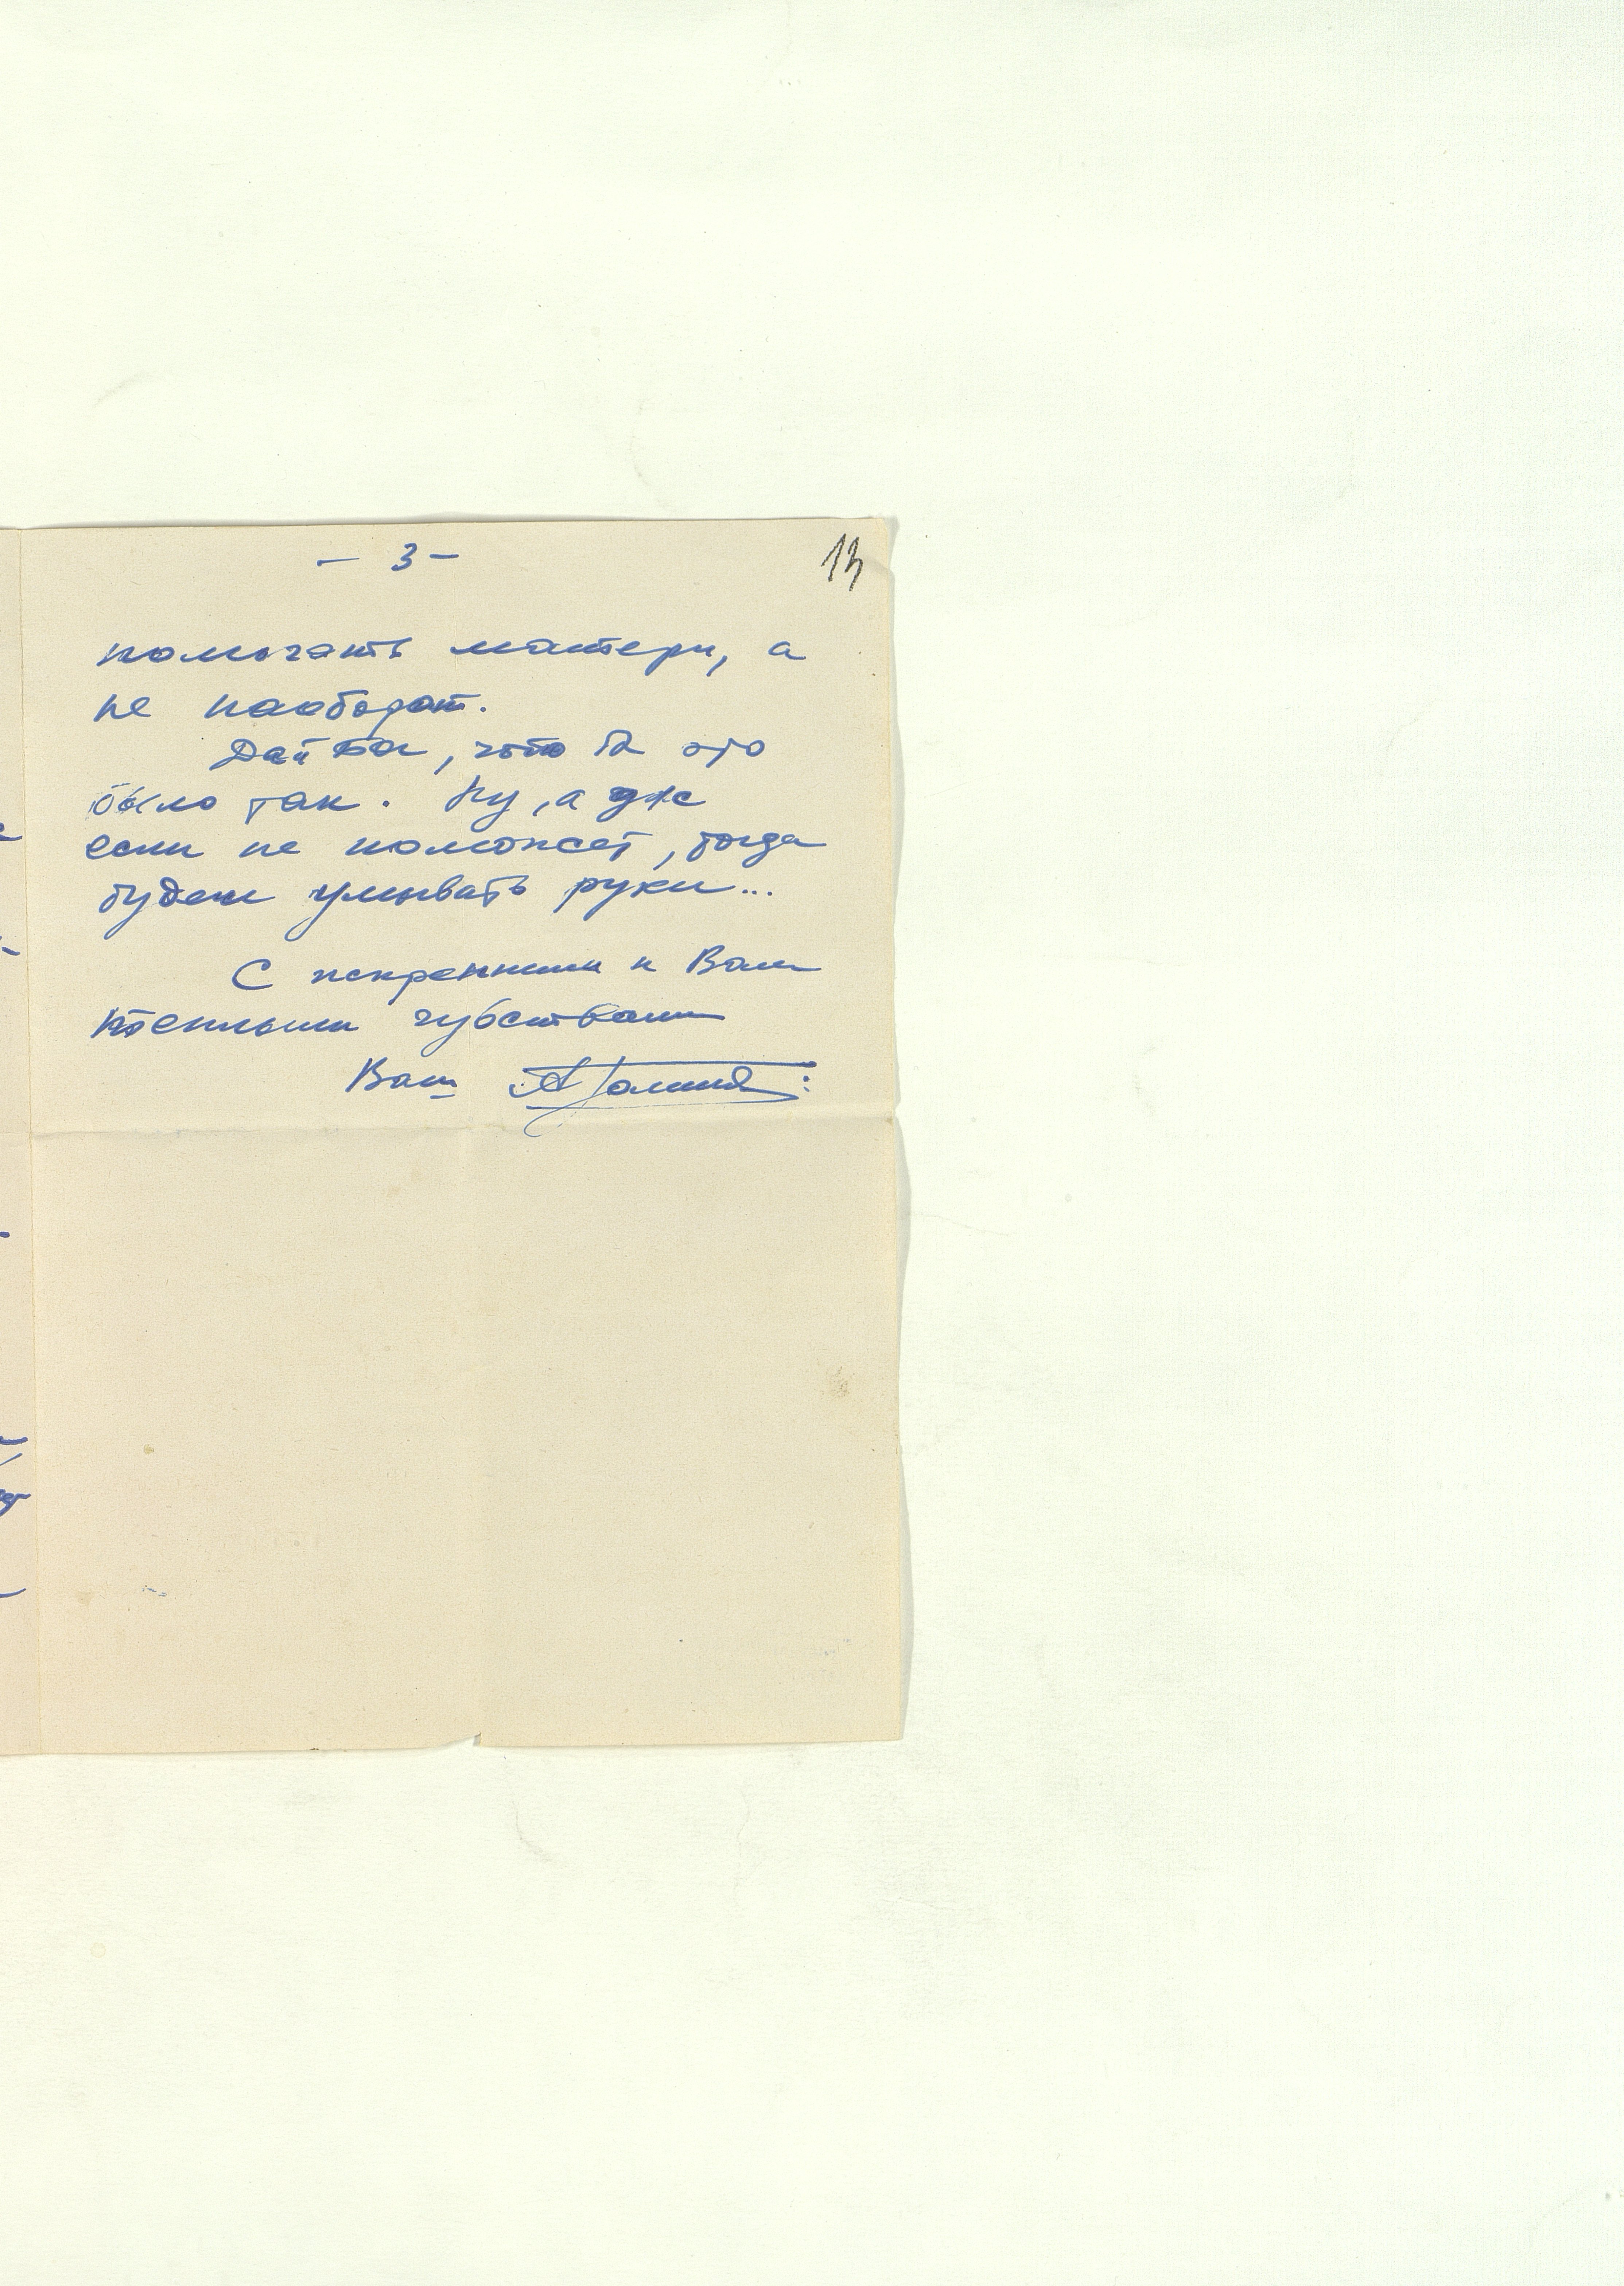 - 3 -
13
помогать матери, а
не наоборот.
Дай Бог, чтоб это
было так. Ну, а уж
если не поможет, тогда
будем умывать руки...
С искренними к Вам
чувствами
Ваш